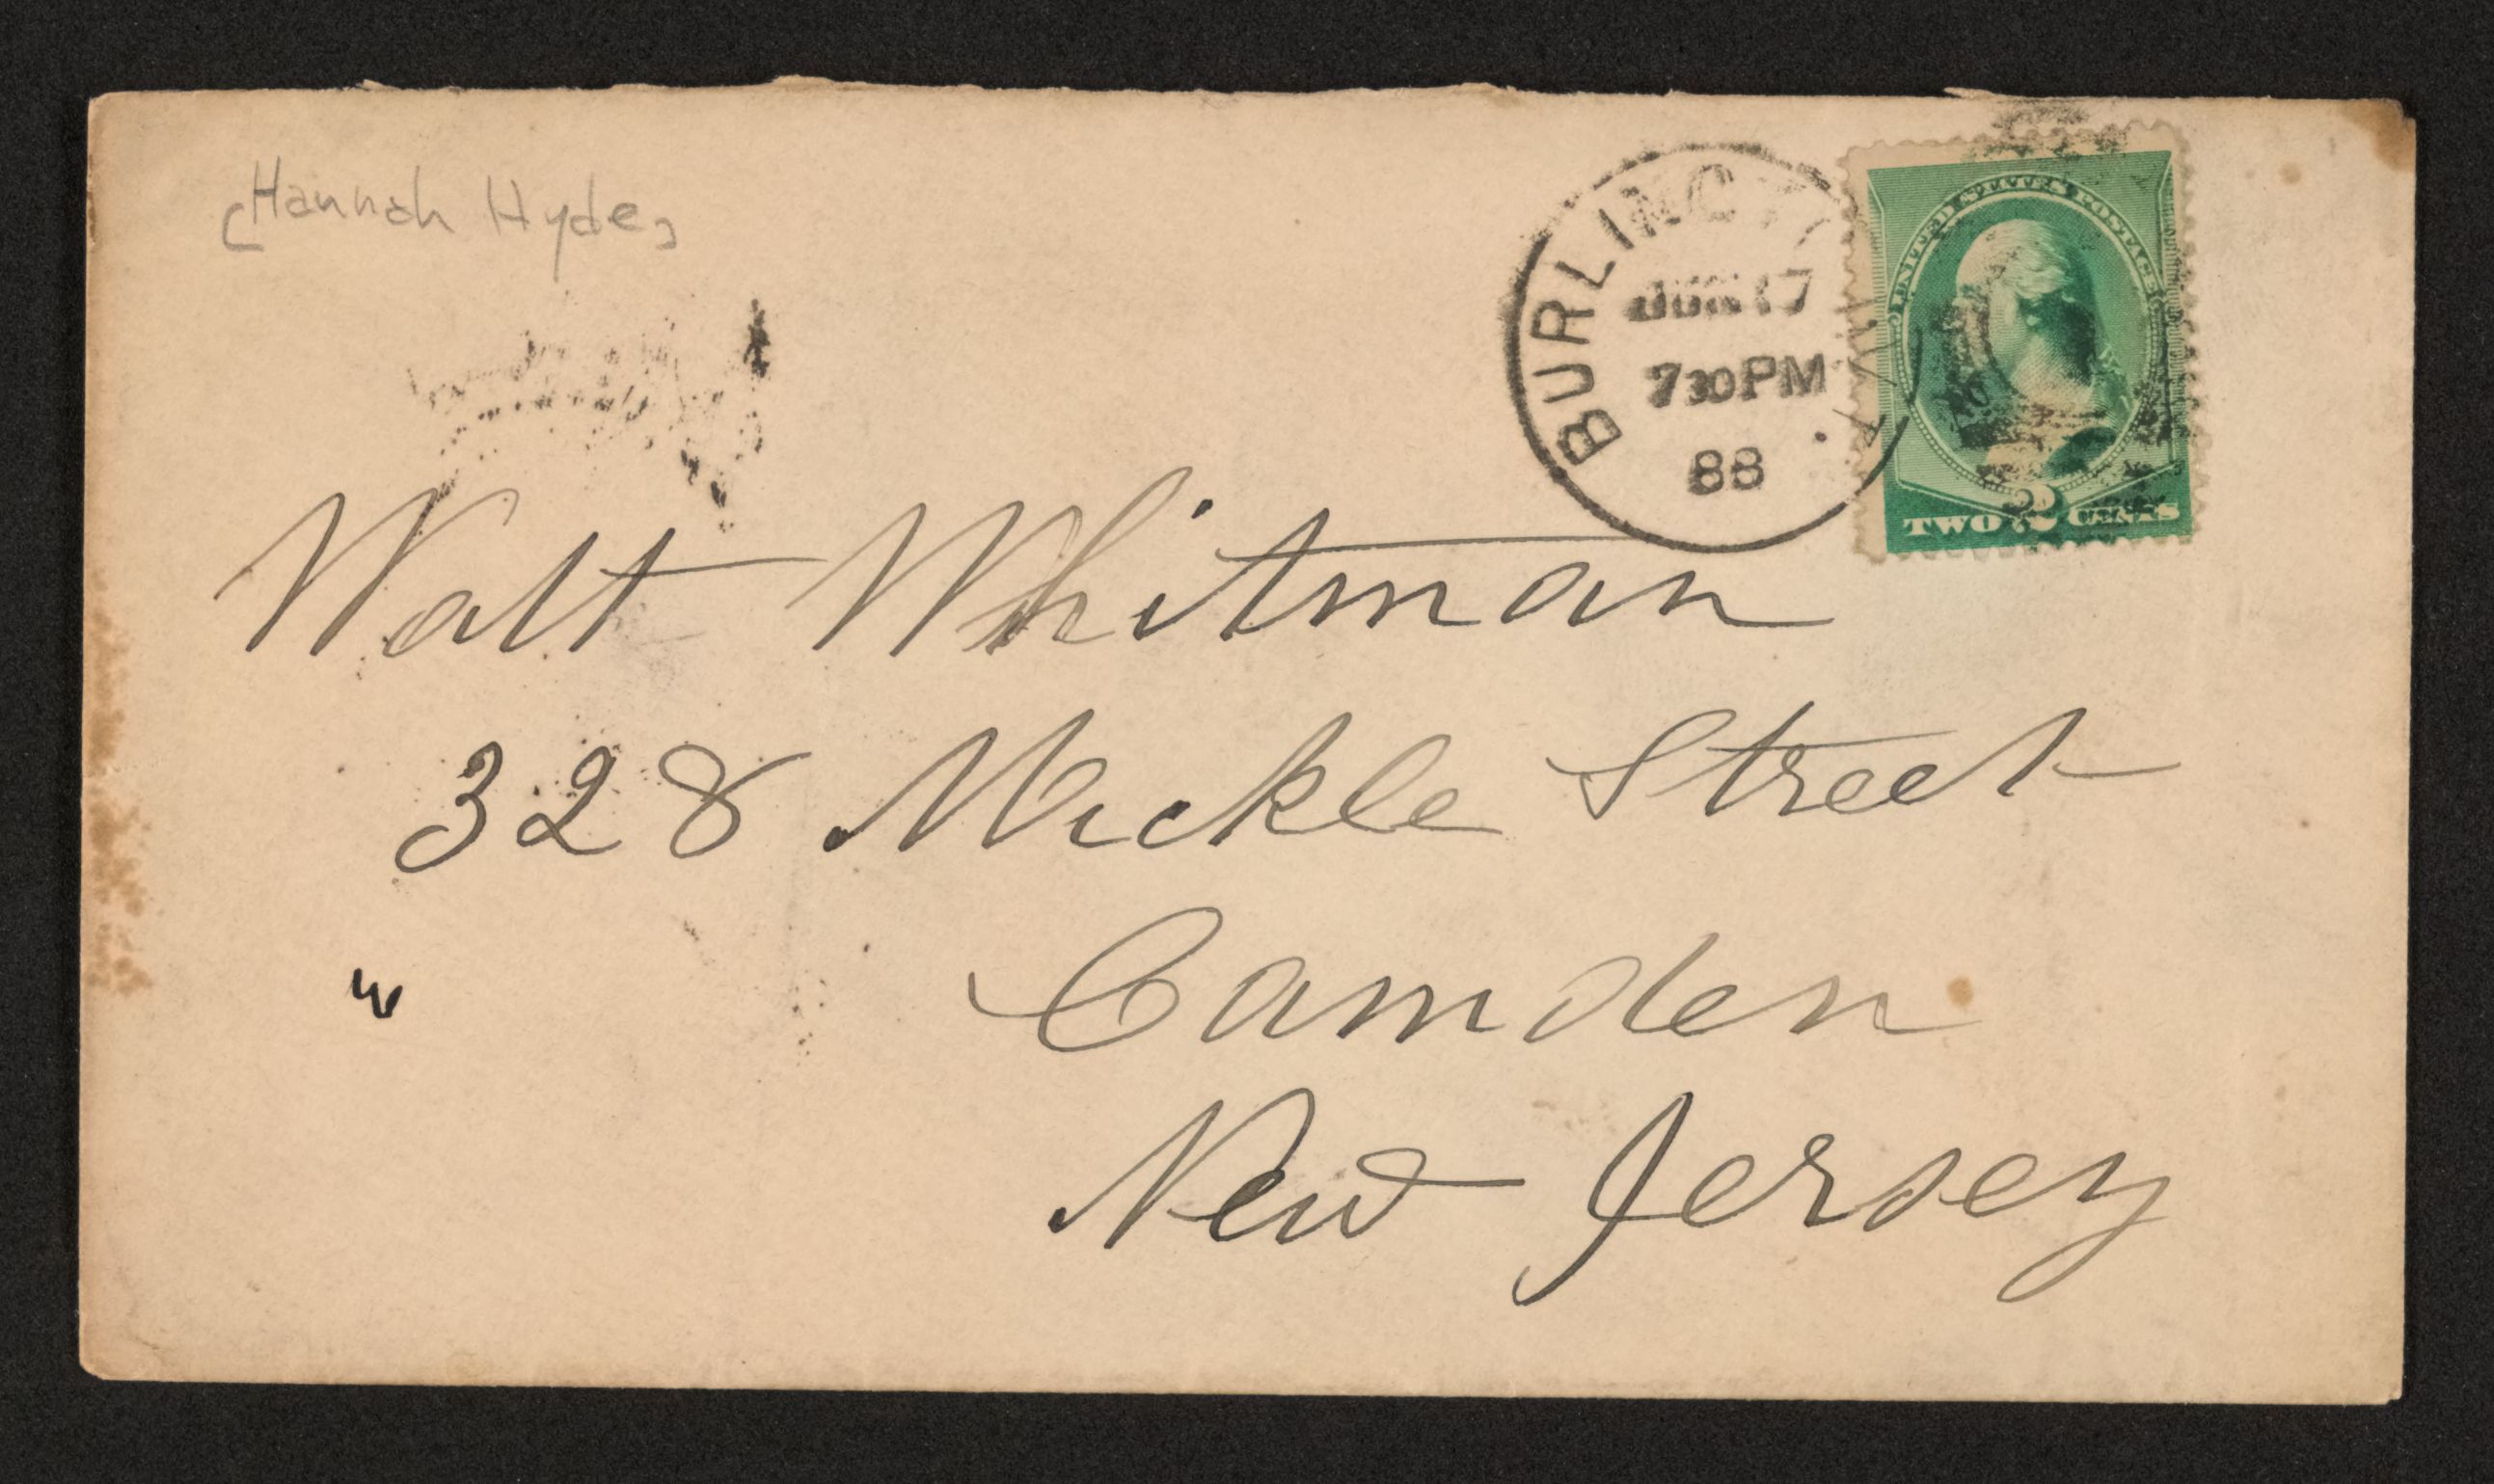 [Hannah Hyde]
BURLINGTON
JUN 17
730PM
88
UNITED STATES POSTAGE
TWO 2 CENTS
Walt Whitman
328 Mickle Street
Camden
New Jersey